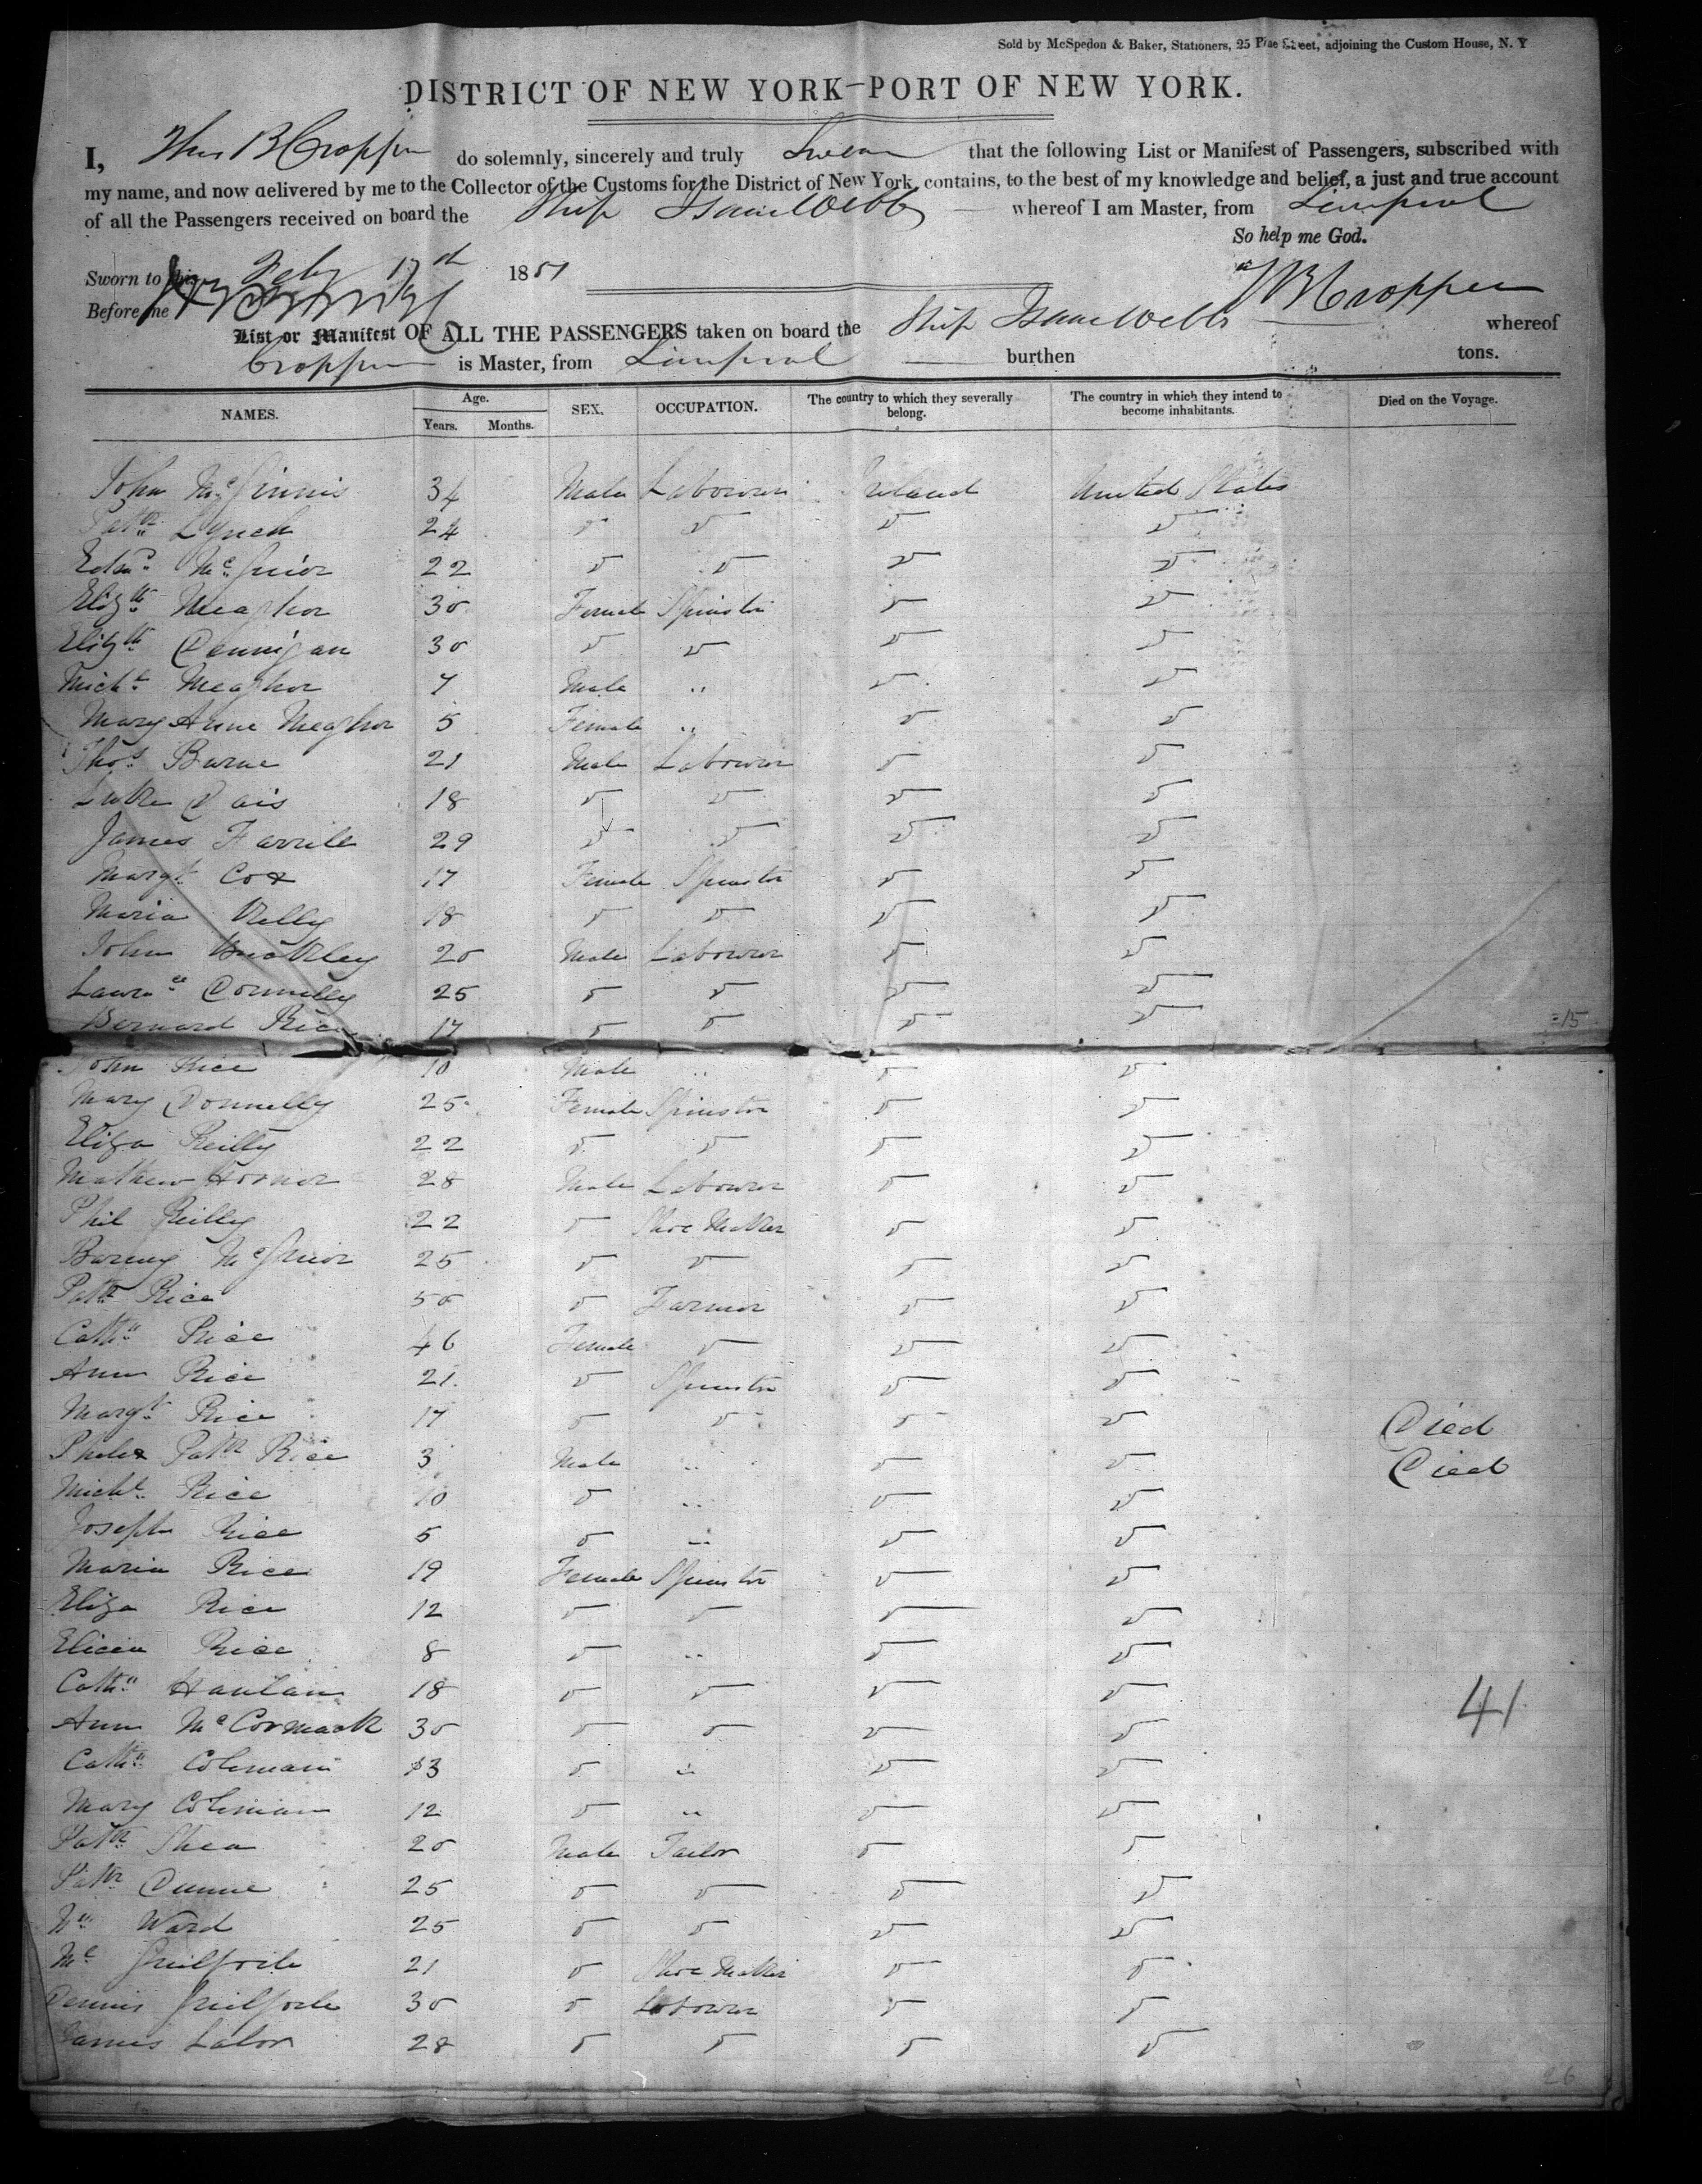 Sold by McSpedon & Baker, Stationers, 25 Pine Street, adjoining the Custom House, N. Y
DISTRICT OF NEW YORK—PORT OF NEW YORK.
I, Thos B Cropper do solemnly, sincerely and truly Swear that the following List or Manifest of Passengers, subscribed with
my name, and now delivered by me to the Collector of the Customs for the District of New York, contains, to the best of my knowledge and belief, a just and true account
of all the Passengers received on board the Ship Isaac Webb whereof I am Master, from Liverpool
So help me God.
Sworn to this Feby 17th 1851
T B Cropper
Before me
List or Manifest OF ALL THE PASSENGERS taken on board the Ship Isaac Webb whereof
Cropper is Master, from Liverpool burthen tons.
NAMES. Age. Years. Months. SEX. OCCUPATION. The country to which they severally belong. The country in which they intend to become inhabitants. Died on the Voyage.
John McGinnis 34 Male Labourer Ireland United States
Patk Lynch 24
Edwd McGuier 22
Elizth Meaghor 30 Female Spinster
Elizth Dennigan 30
Michl Meaghor 7 Male "
Mary Anne Meaghor 5 Female "
Thos Burne 21 Male Labourer
Luke Dais 18
James Farrill 29
Margt Cox 17 Female Spinster
Maria Kelly 18
John Buckley 20 Male Labourer
Lawrce Donnelly 25
Bernard Rice 17
=15
John Rice 10 Male "
Mary Donnelly 25 Female Spinster
Eliza Reilly 22
Mathew Hornor 28 Male Labourer
Phil Reilly 22 Shoe Maker
Barney McGuier 25
Patk Rice 50 Farmer
Cathn Rice 46 Female
Ann Rice 21 Spinster
Margt Rice 17 Died
Patk Rice 3 Male " Died
Michl Rice 10 "
Joseph Rice 5 "
Maria Rice 19 Female Spinster
Eliza Rice 12
Elicia Rice 8 "
Cathn Hanlan 18
Ann McCormack 30
41
Cathn Coleman 13 "
Mary Coleman 12 "
Patk Shea 20 Male Tailor
Patk Dunne 25
Wm Ward 25
Guilfoile 21 Shoe Maker
Dennis Guilfoile 30 Labourer
James Lalor 28
26